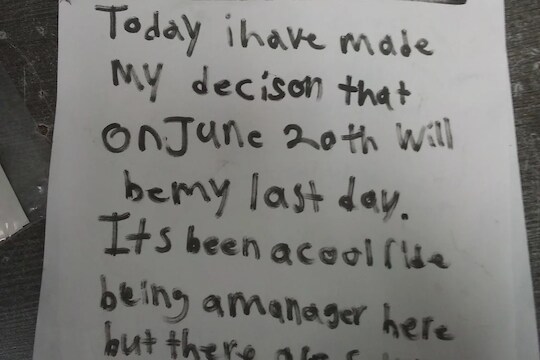 Today i have made
My decison that
on June 20th will
be my last day.
Its been a cool ride
being a manager here
but there are